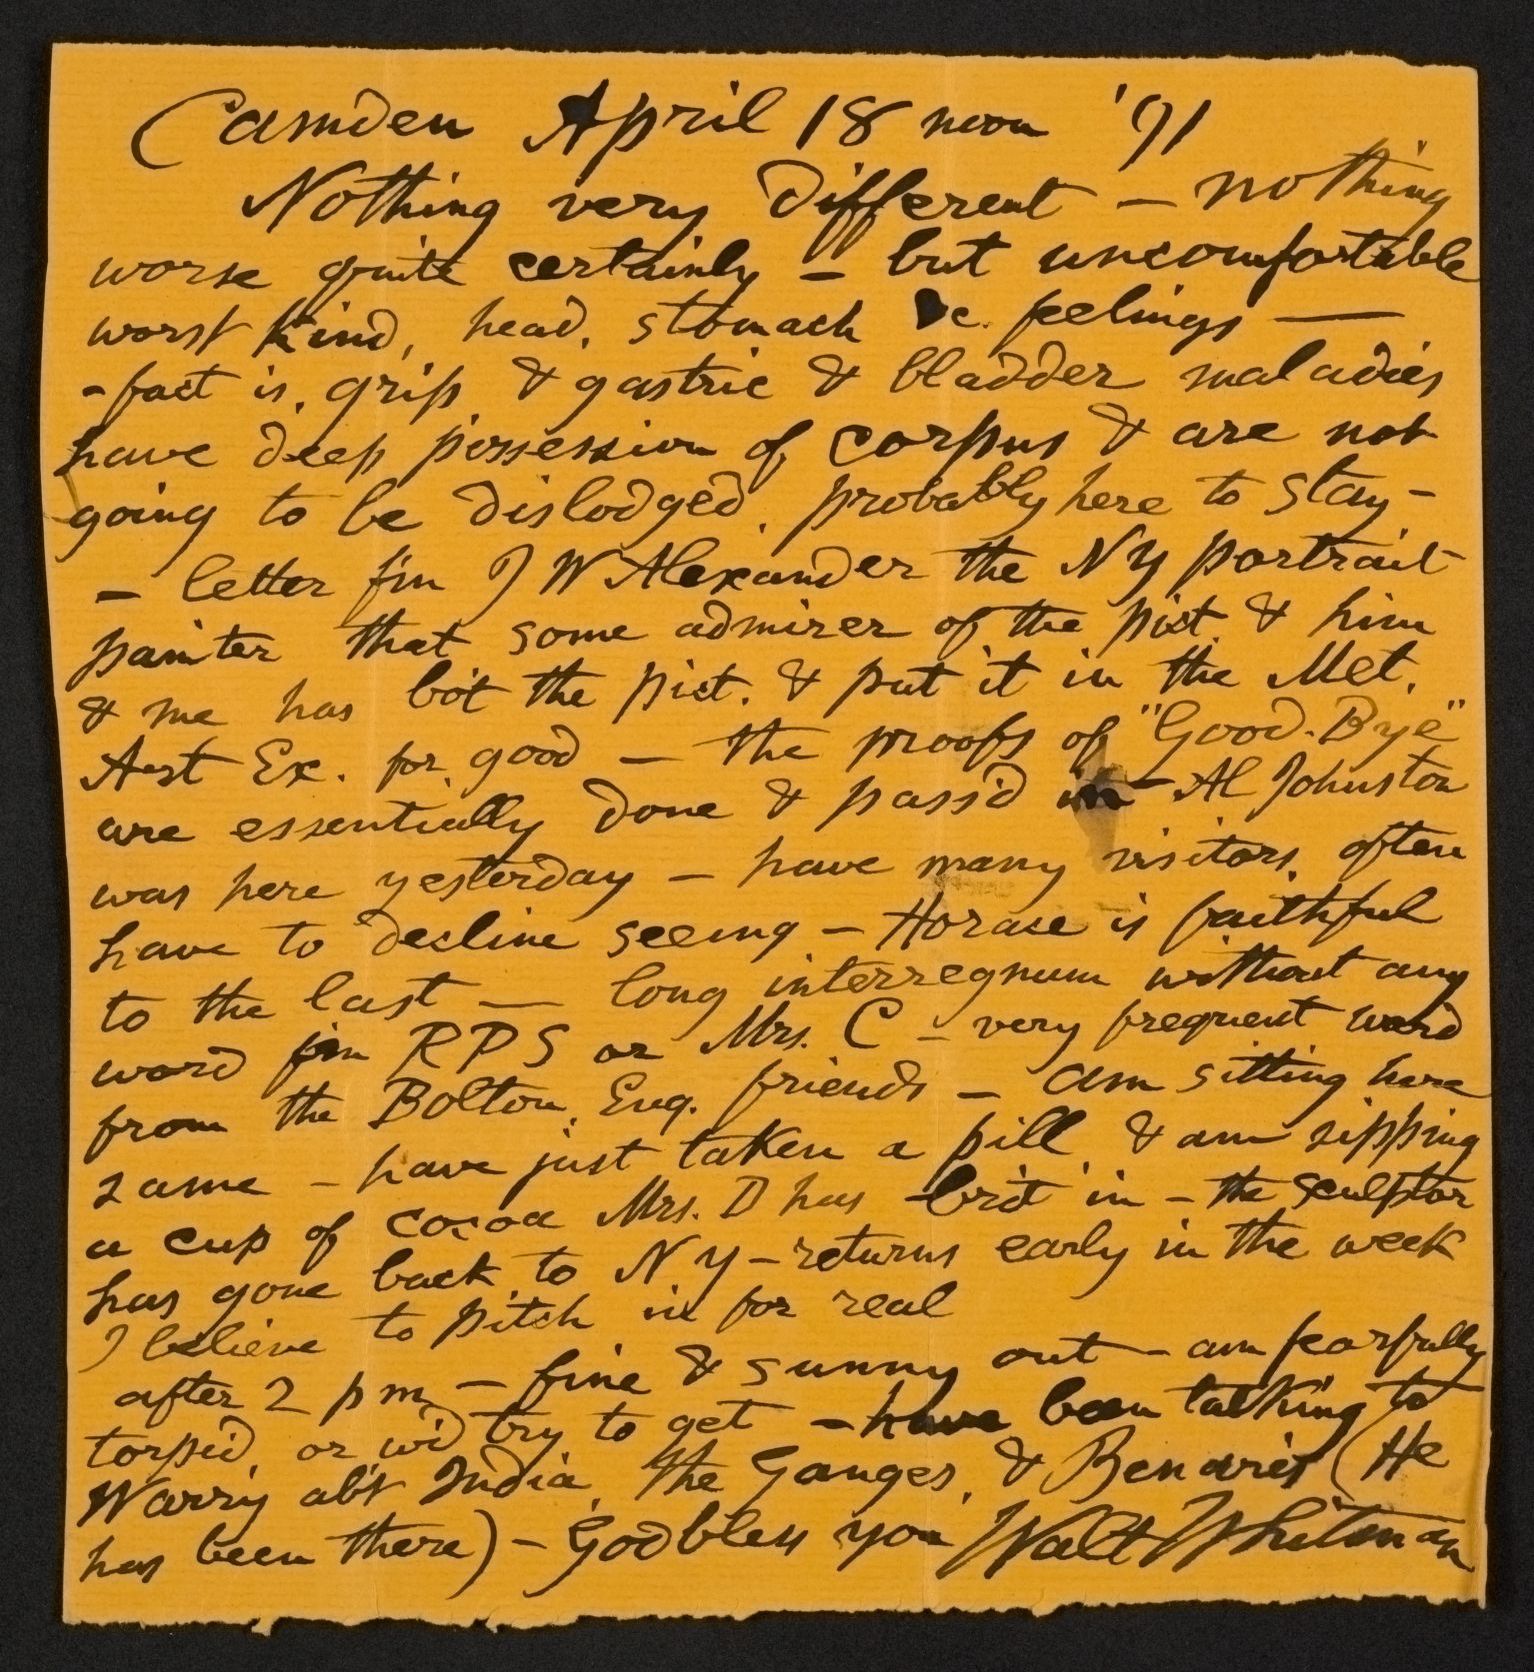 Camden April 18 noon '91
Nothing very different — nothing
worse quite certainly — but uncomfortable
worst kind, head, stomach &c. feelings —
— fact is, grip & gastric & bladder maladies
have deep possession of corpus & are not
going to be dislodged, probably here to stay —
— letter f'm J W Alexander the N Y portrait
painter that some admirer of the pict. & him
& me has bo't the pict. & put it in the Met.
Art Ex. for good — the proofs of "Good-Bye"
are essentially done & pass'd in — Al Johnston
was here yesterday — have many visitors, often
have to decline seeing — Horace is faithful
to the last — long interregnum without any
word f'm R P S or Mrs. C — very frequent word
from the Bolton, Eng. friends — am sitting here
same — have just taken a pill & am sipping
a cup of cocoa Mrs. D has bro't in — the sculptor
has gone back to N Y — returns early in the week
I believe to pitch in for real
after 2 p m — fine & sunny out — am fearfully
torpid, or w'd try to get — have been talking to
Warry ab't India, the Ganges, & Benares (He
has been there) — God bless you Walt Whitman